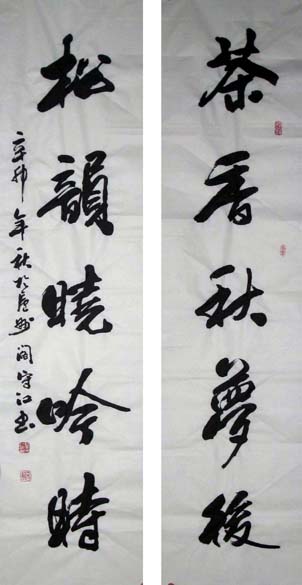 茶香秋夢後
松韻曉吟時
辛卯年秋於州閻守江書